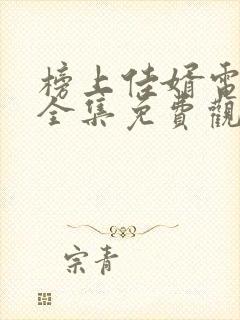 榜上佳婿電
全集免費觀
宗青